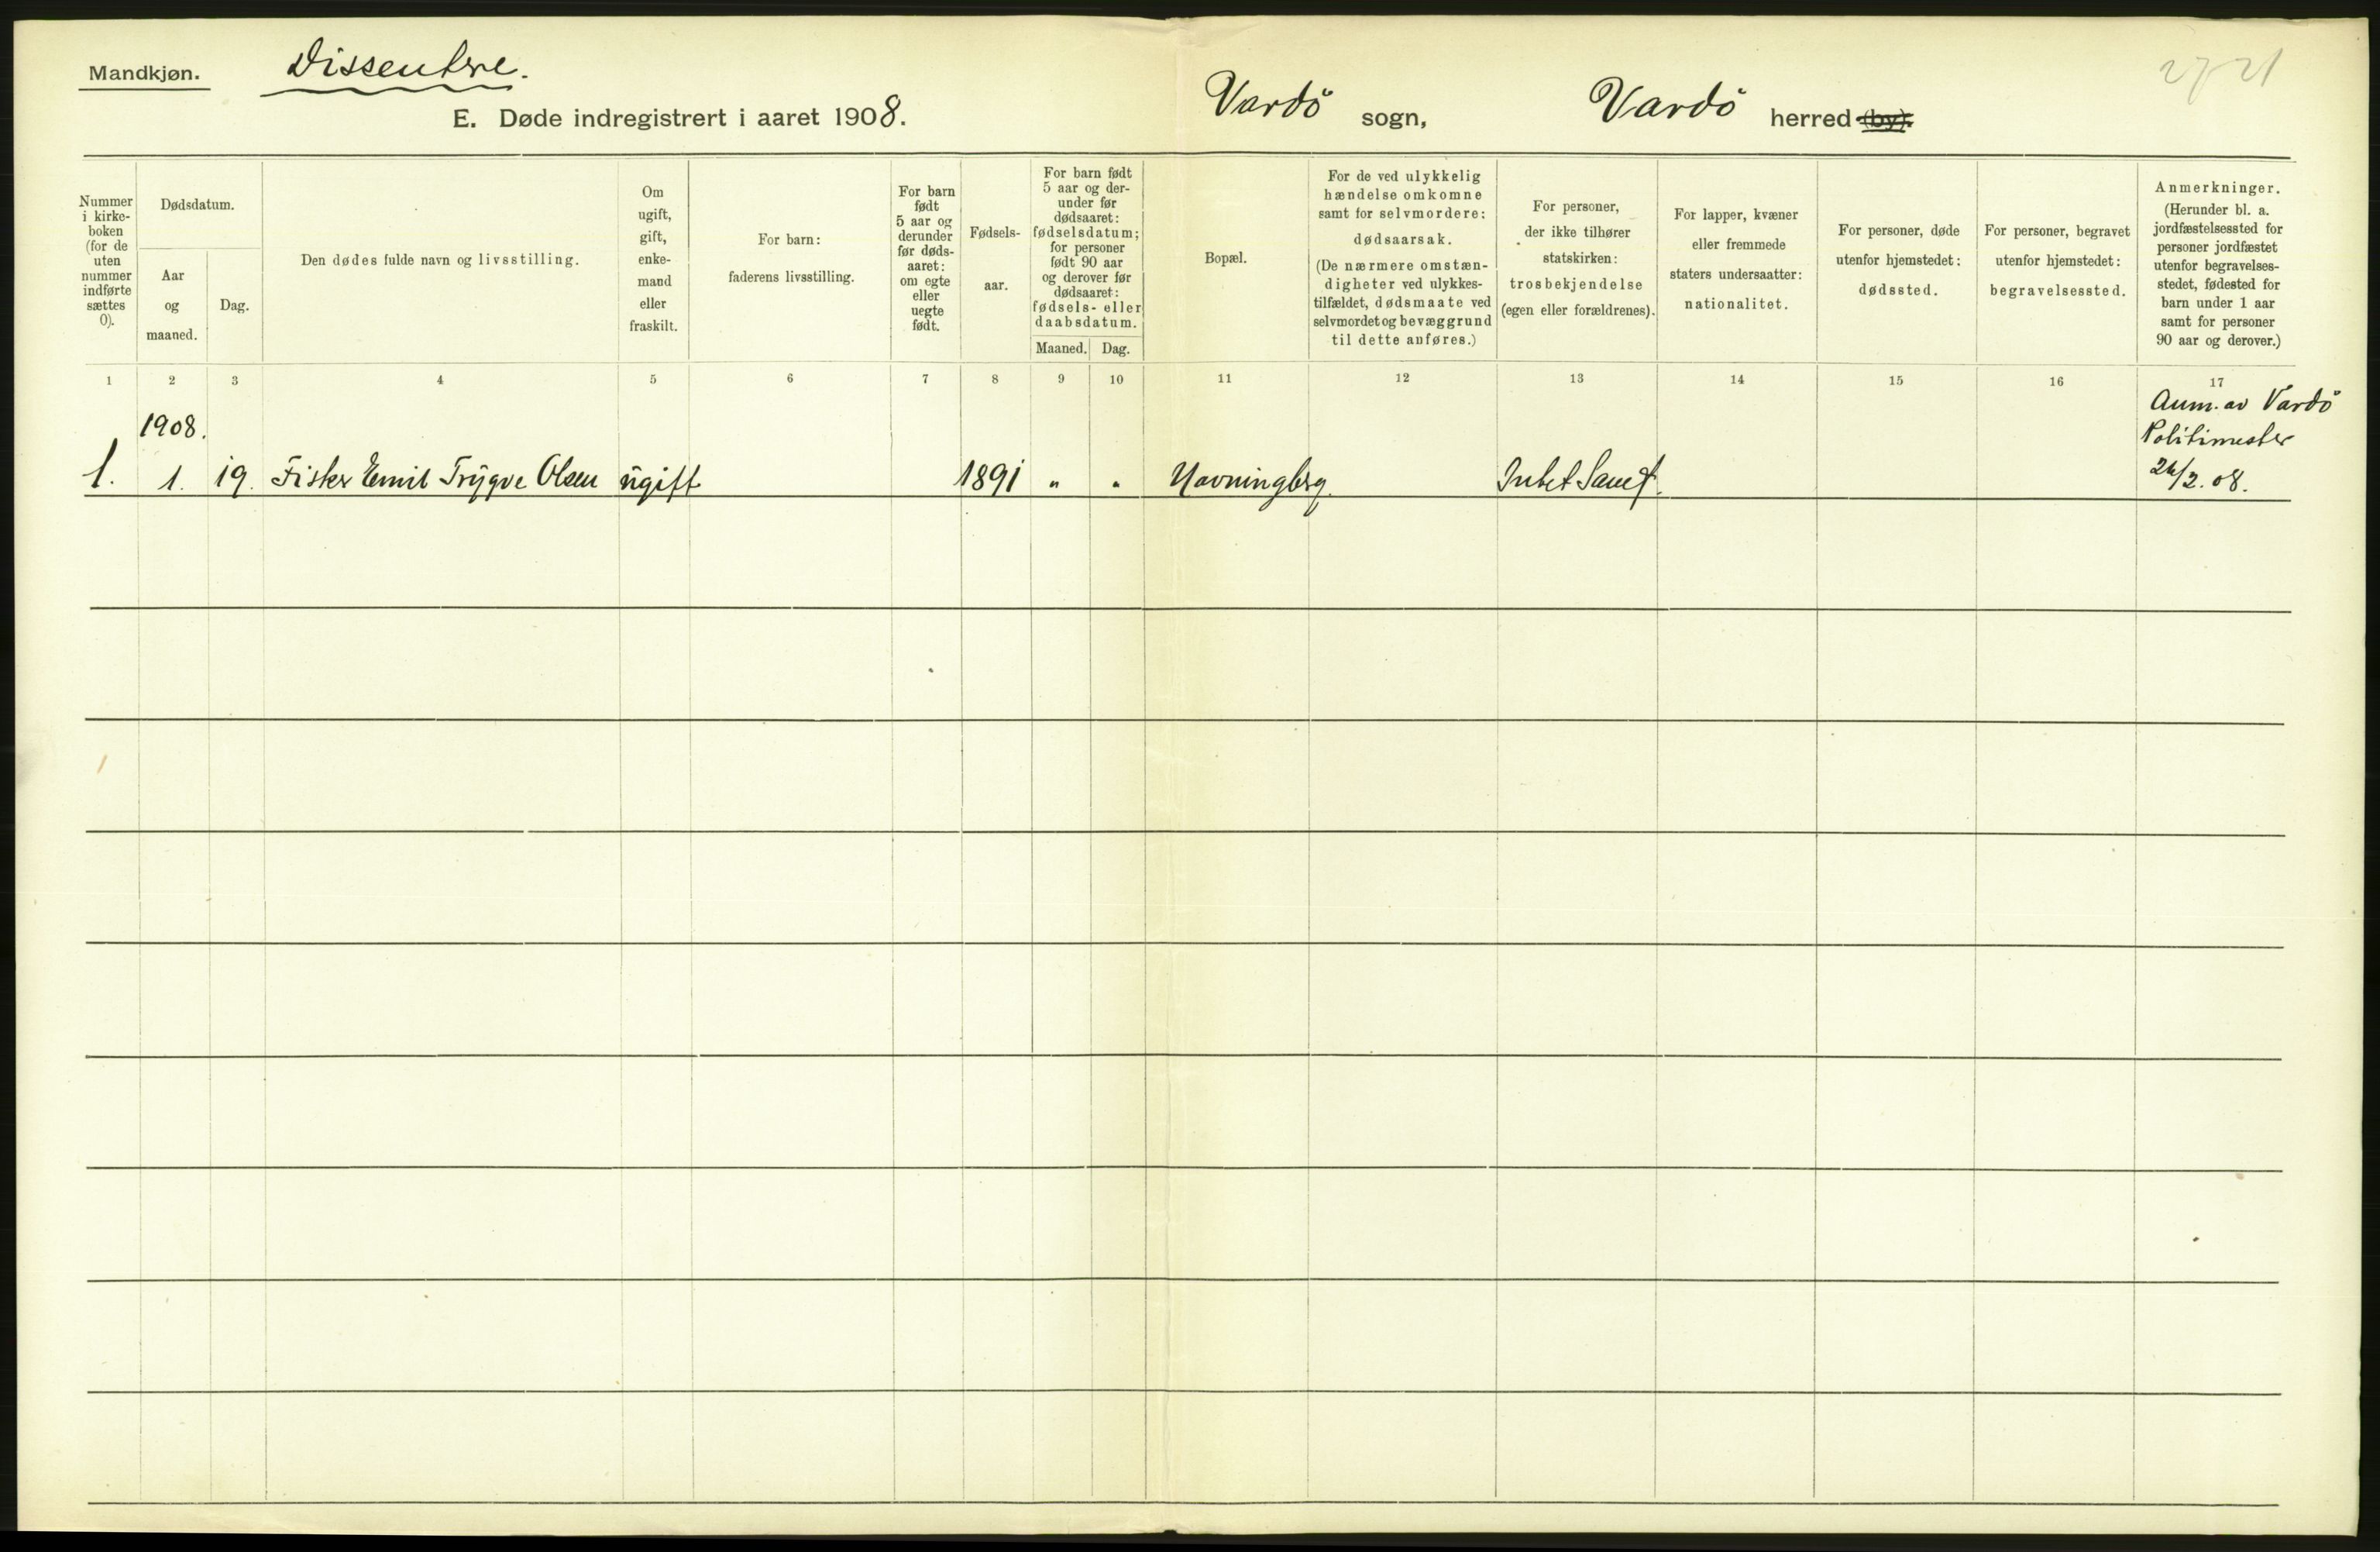 Mandkjøn.
Dissentere.
2721
E. Døde indregistrert i aaret 1908.
Vardö sogn,
Vardö herred (by).
Nummer i kirke-boken (for de uten nummer indførte sættes 0).
Dødsdatum.
Aar og maaned.
Dag.
Den dødes fulde navn og livsstilling.
Om ugift, gift, enke-mand eller fraskilt.
For barn: faderens livsstilling.
For barn født 5 aar og derunder før døds-aaret: om egte eller uegte født.
Fødsels-aar.
For barn født 5 aar og der-under før dødsaaret: fødselsdatum; for personer født 90 aar og derover før dødsaaret: fødsels- eller daabsdatum.
Maaned.
Dag.
Bopæl.
For de ved ulykkelig hændelse omkomne samt for selvmordere: dødsaarsak. (De nærmere omstæn-digheter ved ulykkes-tilfældet, dødsmaate ved selvmordet og bevæggrund til dette anføres.)
For personer, der ikke tilhører statskirken: trosbekjendelse (egen eller forældrenes).
For lapper, kvæner eller fremmede staters undersaatter: nationalitet.
For personer, døde utenfor hjemstedet: dødssted.
For personer, begravet utenfor hjemstedet: begravelsessted.
Anmerkninger. (Herunder bl. a. jordfæstelsessted for personer jordfæstet utenfor begravelses-stedet, fødested for barn under 1 aar samt for personer 90 aar og derover.)
1 2 3 4 5 6 7 8 9 10 11 12 13 14 15 16 17
1908.
Anm. av Vardö
Politimester
1. 1. 19. Fisker Emil Trygve Olsen ugift 1891 " " Havningberg. Intet Samf. 26/2. 08.